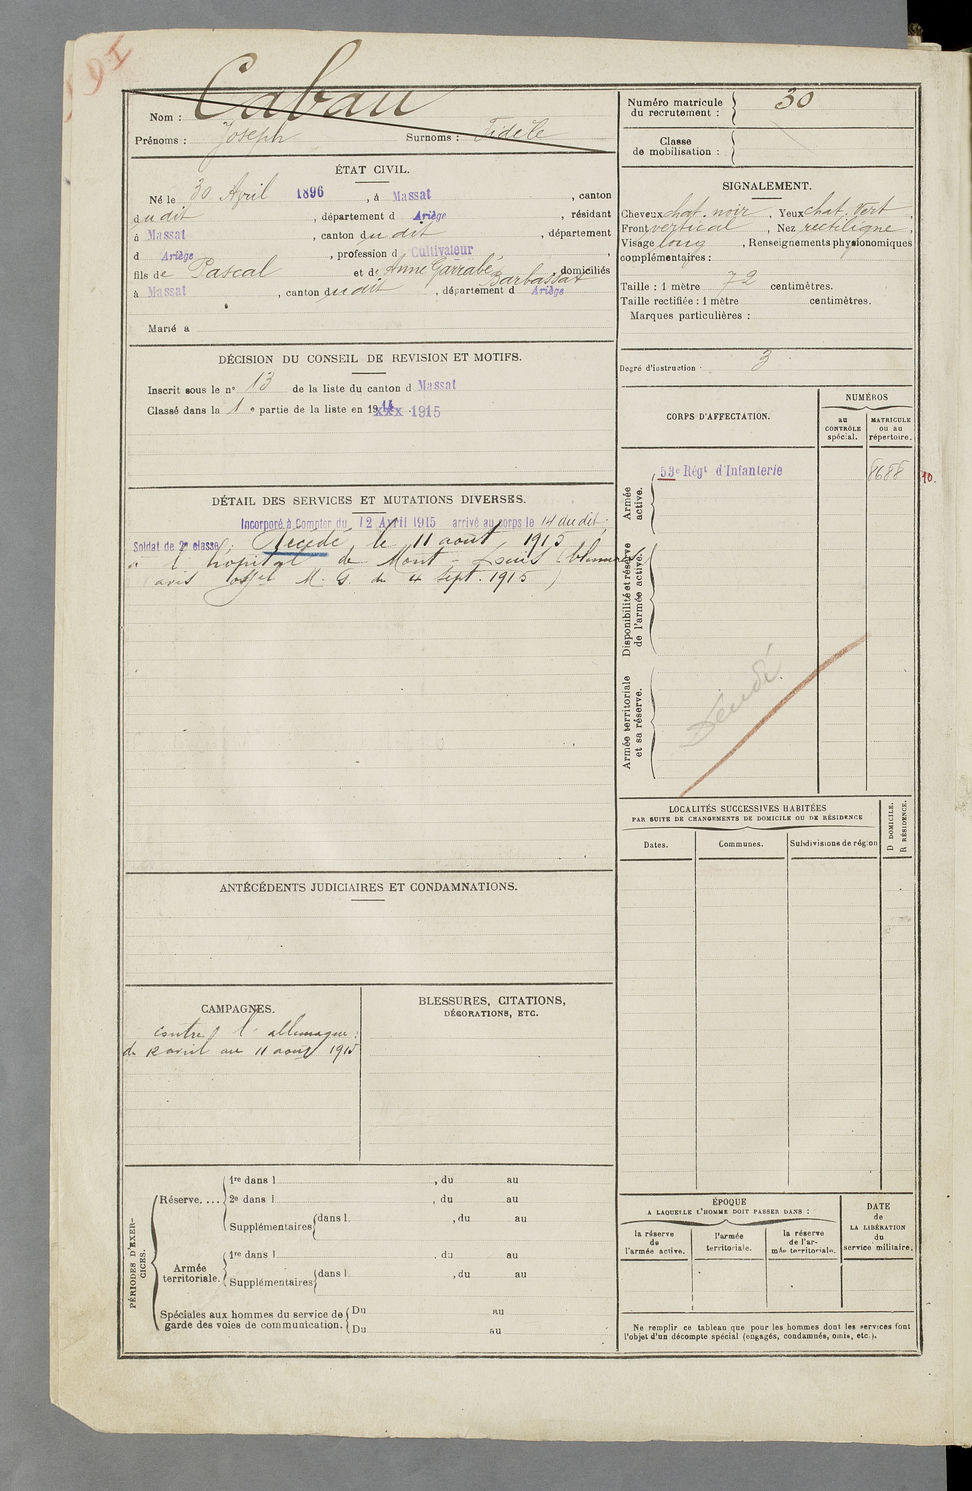 Nom : Cabau
Prénoms : Joseph Surnoms : Fidele
Numéro matricule du recrutement : 30
Classe de mobilisation :
ÉTAT CIVIL.
Né le 30 Avril 1896, à Massat, canton
dudit, département d Ariège, résidant
à Massat, canton dudit, département
d Ariège, profession d Cultivateur,
fils de Pascal et de Anne Garrabé Barbassat, domiciliés
à Massat, canton dudit, département d Ariège
Marié a
SIGNALEMENT.
Cheveux chat. noir. Yeux chat. vert,
Front vertical, Nez rectiligne,
Visage long, Renseignements physionomiques
complémentaires :
Taille : 1 mètre 72 centimètres.
Taille rectifiée : 1 mètre centimètres.
Marques particulières :
Degré d'instruction 3
DÉCISION DU CONSEIL DE REVISION ET MOTIFS.
Inscrit sous le n° 13 de la liste du canton d Massat
Classé dans la 1e partie de la liste en 1914 xxx 1915
CORPS D'AFFECTATION.
NUMÉROS
au CONTRÔLE spécial.
MATRICULE ou au répertoire.
Armée active.
53e Régt d'Infanterie 8688
10.
Disponibilité et réserve de l'armée active.
Armée territoriale et sa réserve.
DÉTAIL DES SERVICES ET MUTATIONS DIVERSES.
Incorporé à Compter du 12 Avril 1915 arrivé au corps le 14 dudit,
Soldat de 2e classe. Décédé le 11 août 1915
à l'hôpital de Mont-Louis
(avis offel M. G. du 4 Sept. 1915)
LOCALITÉS SUCCESSIVES HABITÉES
PAR SUITE DE CHANGEMENTS DE DOMICILE OU DE RÉSIDENCE
Dates. Communes. Subdivisions de région
D DOMICILE.
R RÉSIDENCE.
ANTÉCÉDENTS JUDICIAIRES ET CONDAMNATIONS.
CAMPAGNES.
contre l'allemagne :
du 12 avril au 11 août 1915
BLESSURES, CITATIONS,
DÉCORATIONS, ETC.
PÉRIODES D'EXERCICES.
Réserve....
1re dans l , du au
2e dans l , du au
Supplémentaires dans l. , du au
Armée territoriale.
1re dans l , du au
Supplémentaires dans l , du au
Spéciales aux hommes du service de
garde des voies de communication.
Du au
Du au
ÉPOQUE
A LAQUELLE L'HOMME DOIT PASSER DANS :
la réserve de l'armée active.
l'armée territoriale.
la réserve de l'armée territoriale.
DATE de LA LIBÉRATION du service militaire.
Ne remplir ce tableau que pour les hommes dont les services font
l'objet d'un décompte spécial (engagés, condamnés, omis, etc.).